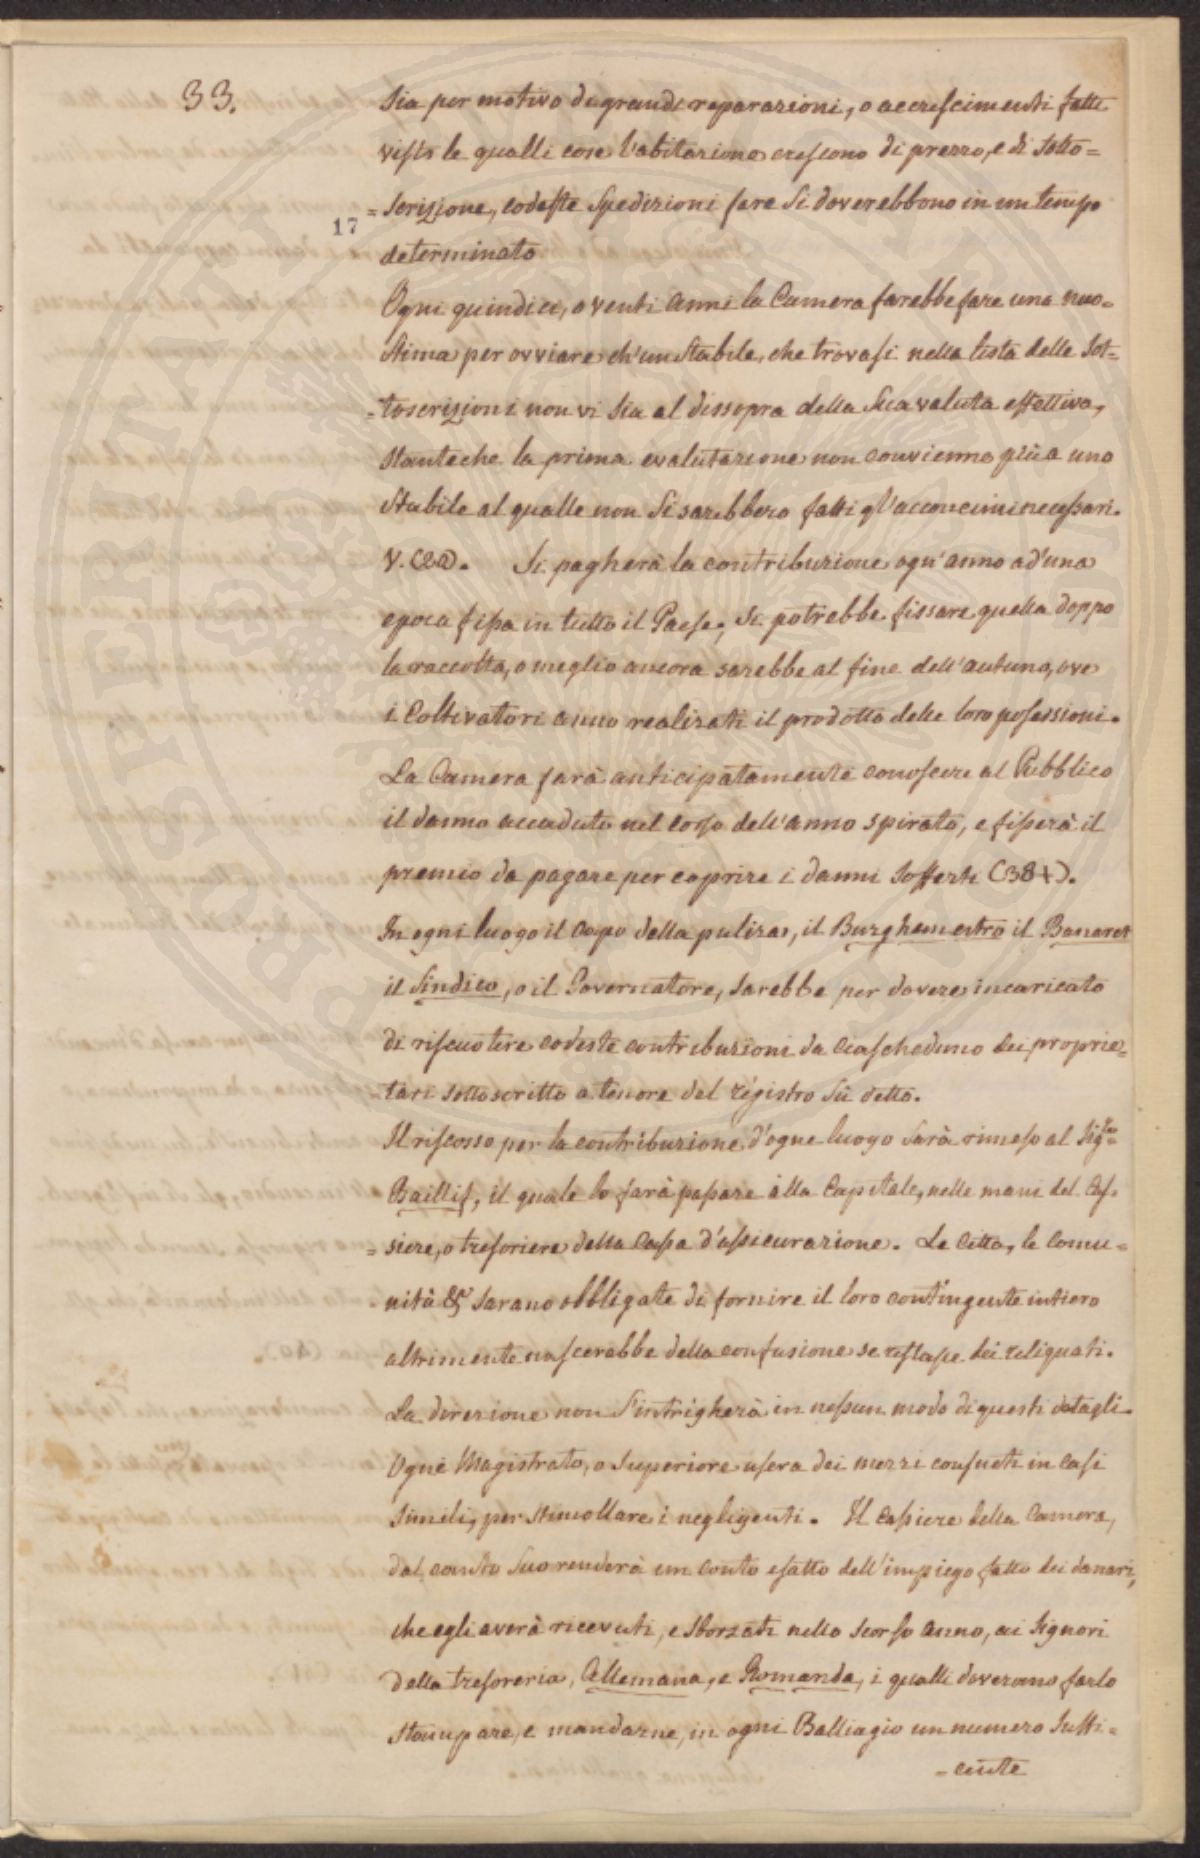 33.
Sia per motivo di grandi reparazioni, o accrescimenti fatti
visto le qualli cose l'abitazione crescono di prezzo, e di sotto=
=scrizione, codeste Spedizioni fare Si doverebbono in un tempo
17
determinato
Ogni quindici, o venti anni la Camera farebbe fare una nuo=
Stima per ovviare ch'un Stabile, che trovasi nella lista delle Sot=
=toscrizioni non vi Sia al dissopra della Sua valuta effettiva,
Stanteche la prima evalutazione non convienne più a uno
Stabile al qualle non Si sarebbero fatti gl'acconcimi necessari.
V. (22). Si pagherà la contribuzione ogn'anno ad'una
epoca fissa in tutto il Paese, Si potrebbe fissare quella doppo
la raccolta, o meglio ancora sarebbe al fine dell'autuno, ove
i Coltivatori anno realizati il prodotto delle loro possessioni.
La Camera farà anticipatamente conoscere al Pubblico
il danno accaduto nel corso dell'anno spirato, e fisserà il
premio da pagare per coprire i danni Sofferti (38+).
In ogni luogo il capo della pulizia, il Burghemestro il Banaret
il Sindico, o il Governatore, Sarebbe per dovere incaricato
di riscuotere codeste contribuzioni da ciascheduno dei proprie=
=tari sottoscritto a tenore del régistro Sù detto.
Il riscosso per la contribuzione d'ogne luogo Sarà rimesso al Sig.re
Baillif, il quale lo farà passare alla Capitale, nelle mani del Cas=
=siere, o tresoriere della Cassa d'assicurazione. Le Citta, le Comu=
nità &c Sarano obbligate di fornire il loro contingente intiero
altrimente nascerebbe della confusione se restasse dei reliquati.
La direzione non S'intrigherà in nessun modo di questi detagli.
Ogni Magistrato, o Superiore usera dei mezzi consueti in casi
Simili, per Stimollare i negligenti. Il Cassiere della Camera,
dal canto Suo renderà un conto esatto dell'impiego fatto dei danari,
che egli averà ricevuti, e Sborzati nello Scorso anno, ai Signori
della tresoreria, Allemana, e Romanda, i qualli doverano farlo
Stampare, e mandarne, in ogni Balliagio un numero Suffi=
=ciente